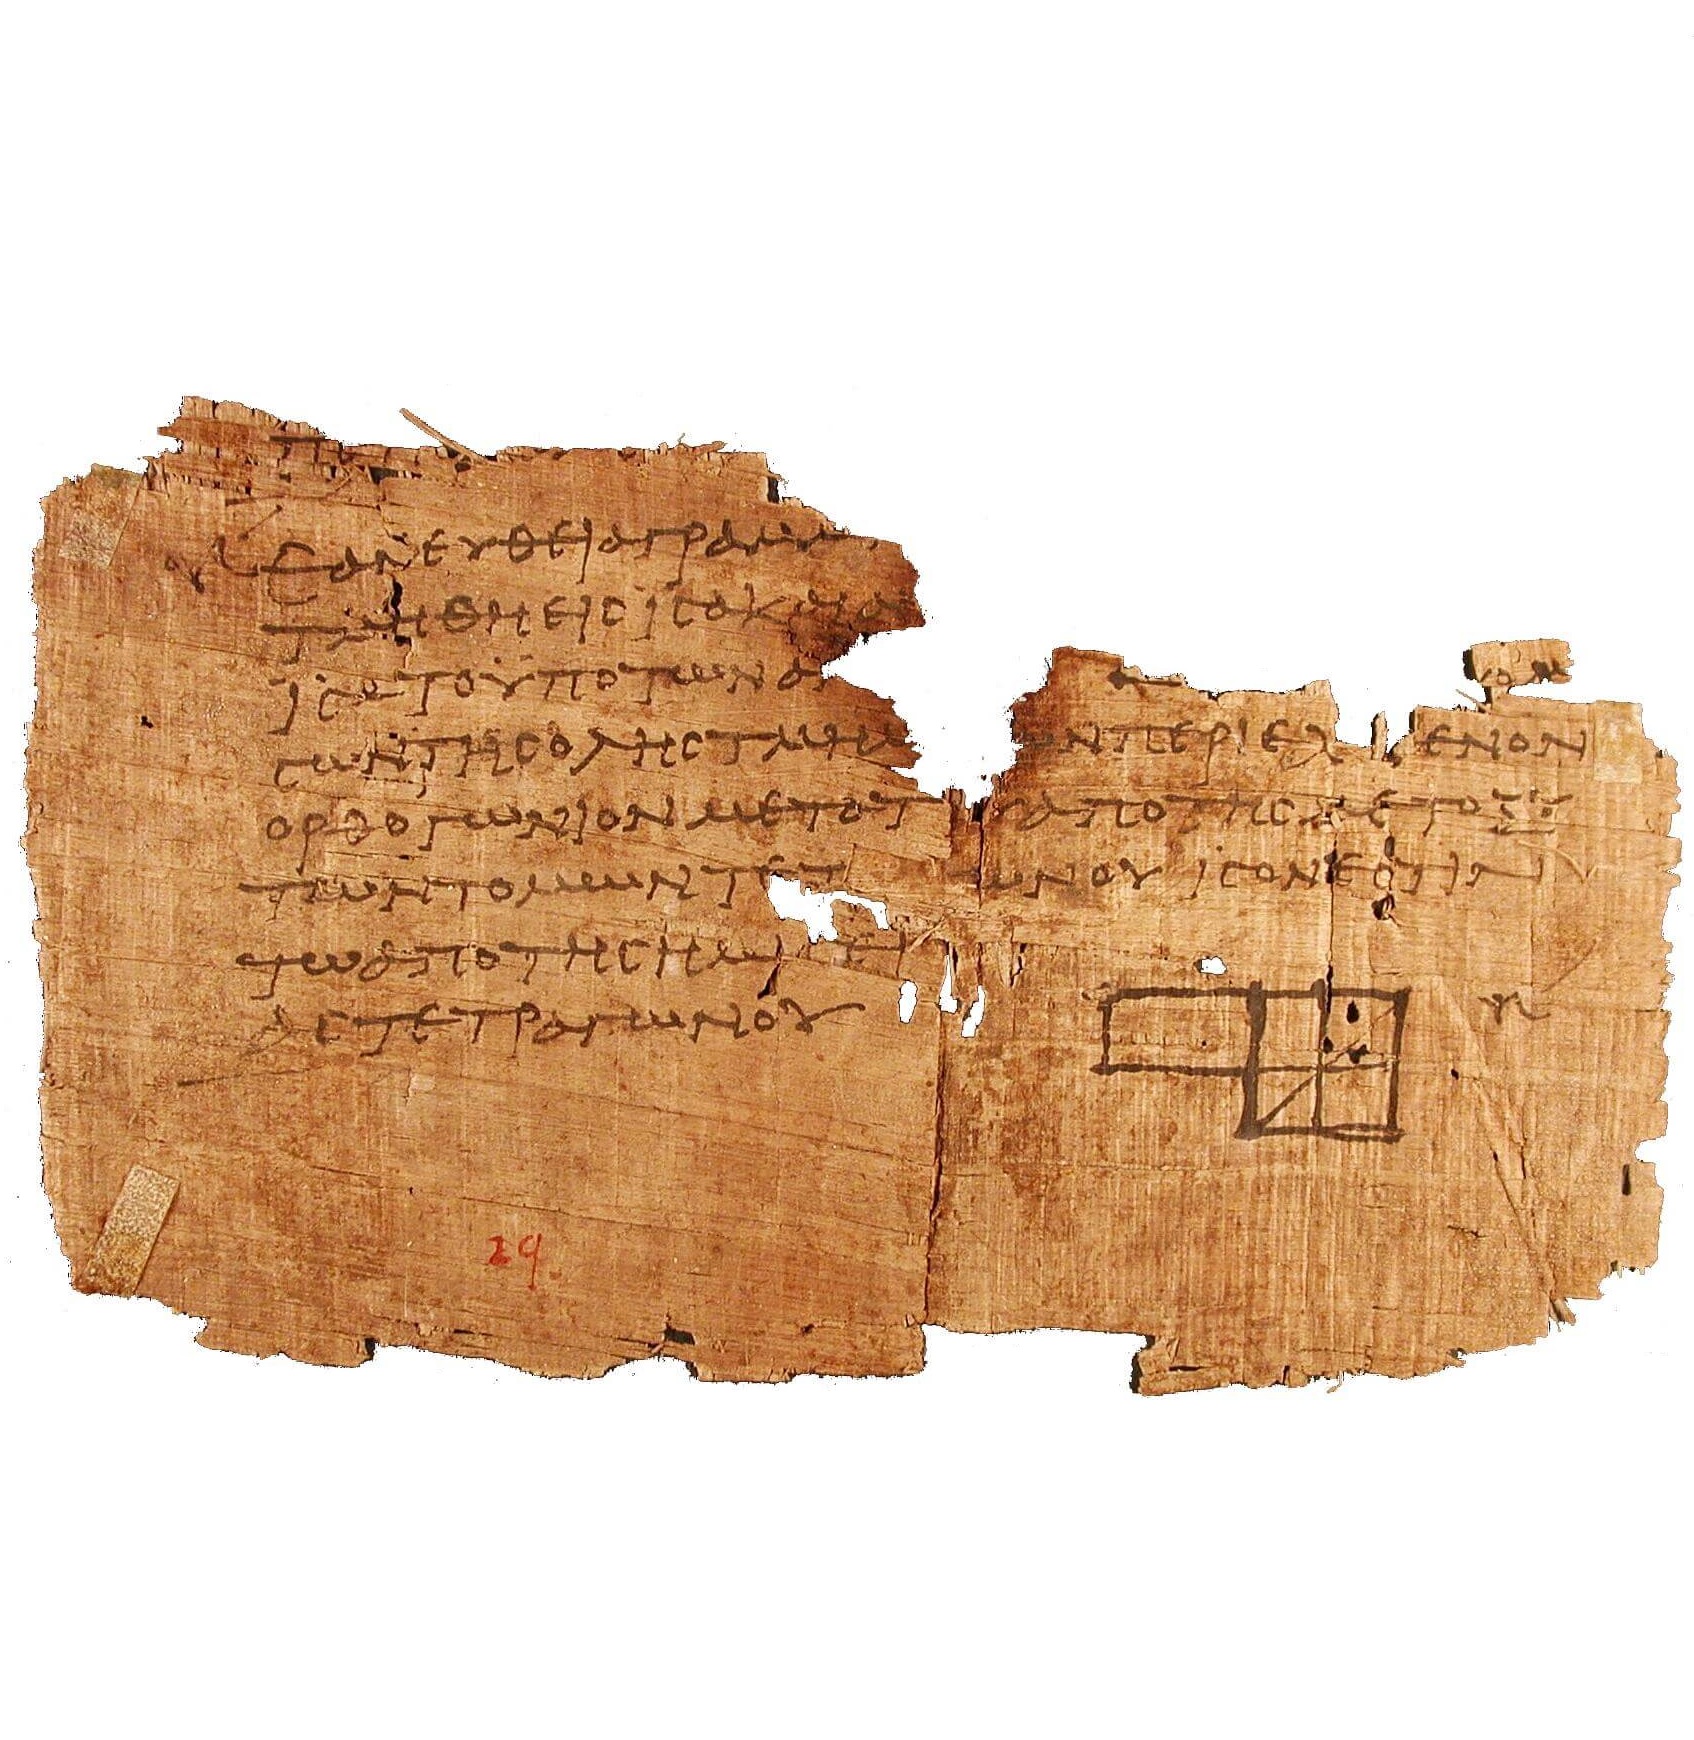 ΕΑΝΕΥΘΕΙΑΓΡΑΜΜ
ΤΜΗΘΗΕΙΣΙΣΑΚΑΙΑ
ΙΣΑΤΟΫΠΟΤΩΝΑΝ
ΣΩΝΤΗΣΟΛΗΣΤΜΗΜ ΩΝΠΕΡΙΕΧ ΜΕΝΟΝ
ΟΡΘΟΓΩΝΙΟΝΜΕΤΟΤ ΑΠΟΤΗΣΜΕΤΟΞΥ
ΤΩΝΤΟΜΩΝΤΕΤ ΩΝΟΥ ΙΣΟΝΕΣΤΙΝ
ΤΩΑΠΟΤΗΣΗΜΙ
ΑΣΤΕΤΡΑΓΩΝΟΥ
29.